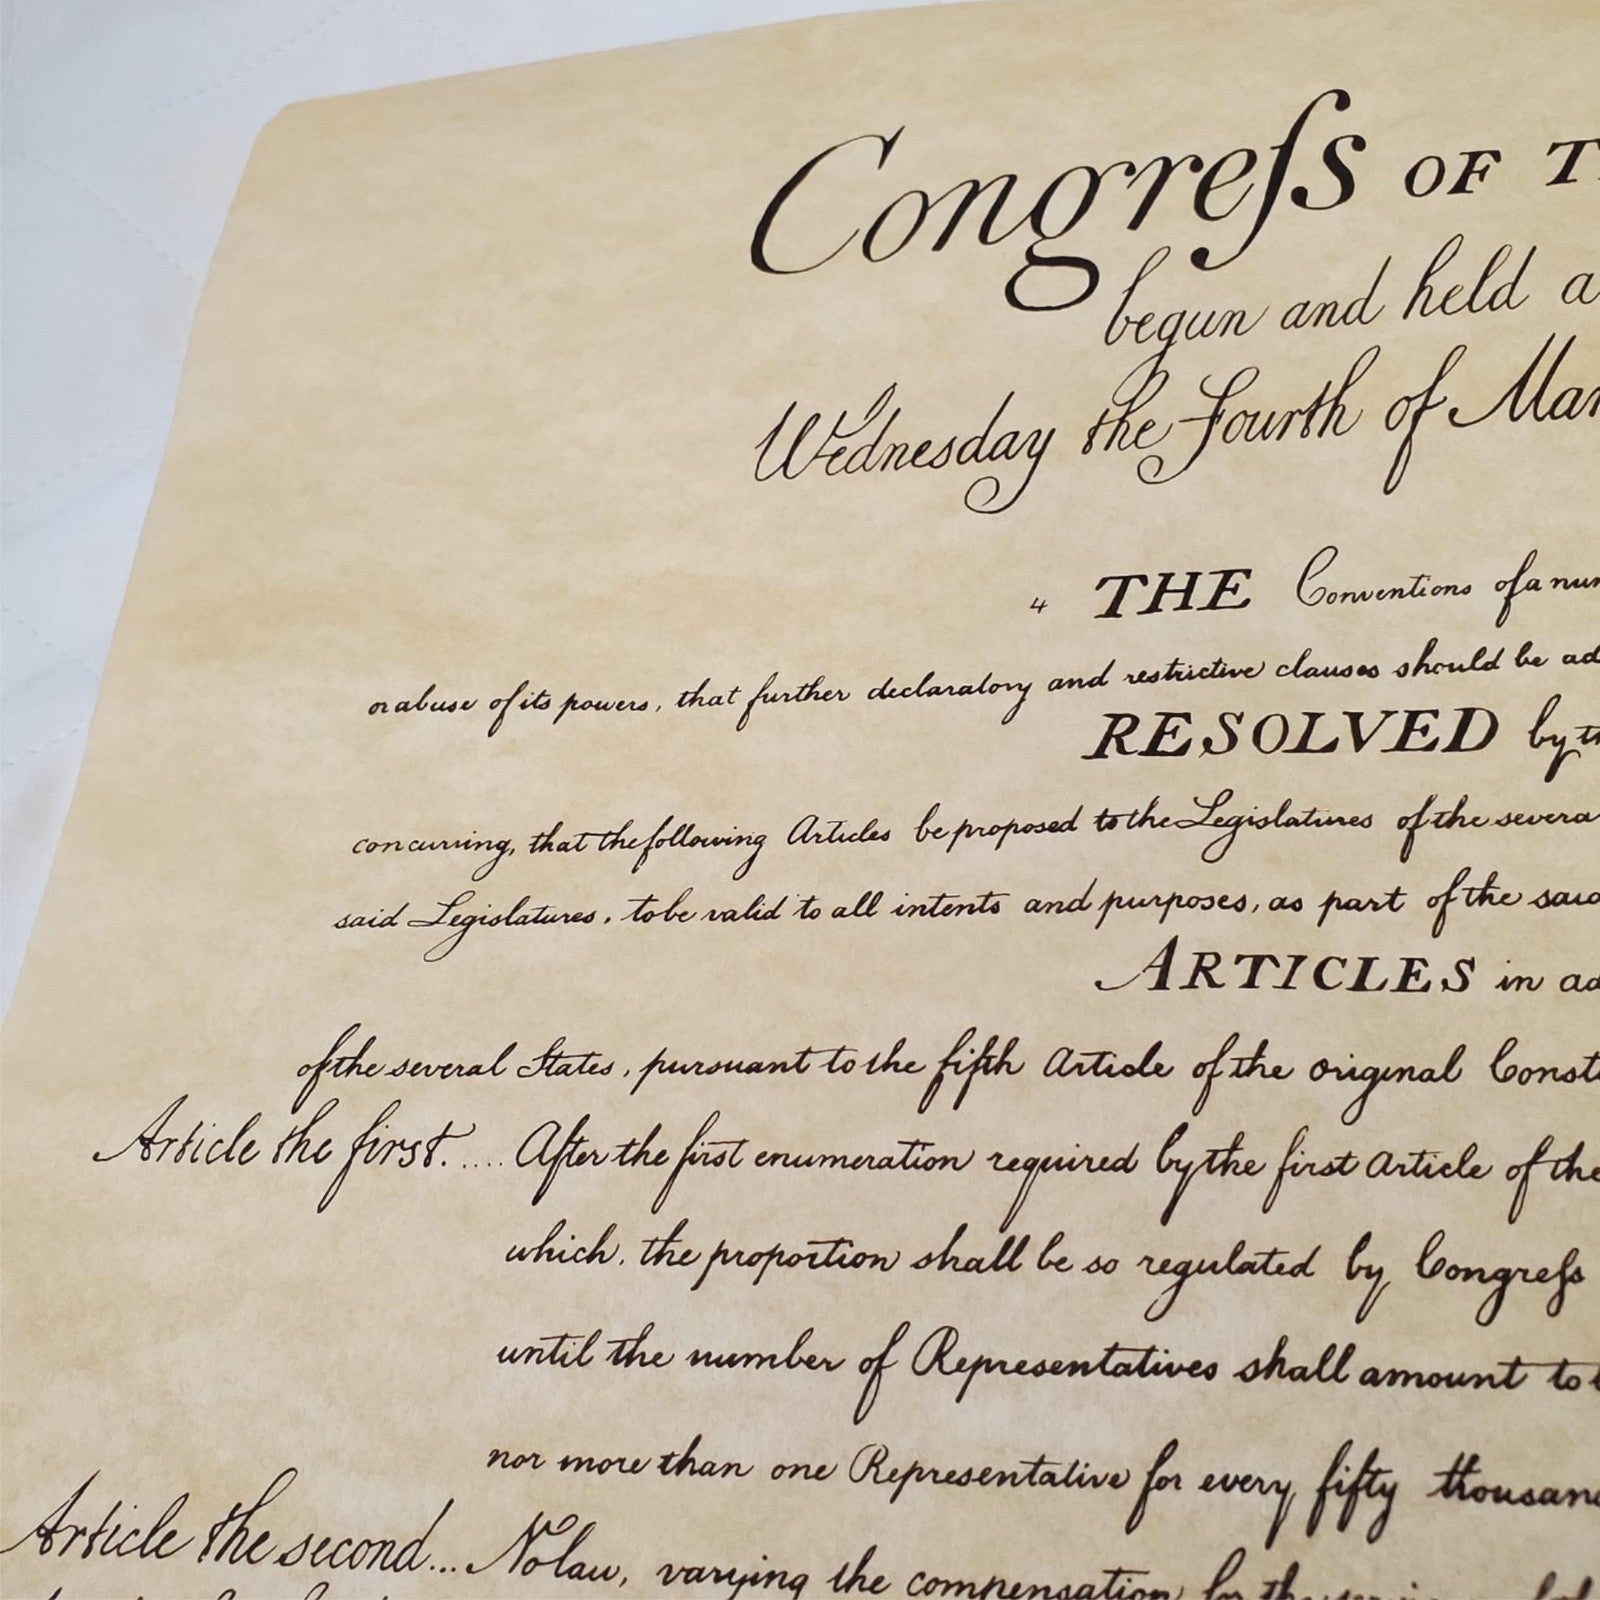 Congreſs OF T
begun and held a
Wednesday the Fourth of Mar
THE Conventions of a num
or abuse of its powers, that further declaratory and restrictive clauses should be ad
RESOLVED by th
concurring, that the following Articles be proposed to the Legislatures of the severa
said Legislatures, to be valid to all intents and purposes, as part of the said
ARTICLES in ad
of the several States, pursuant to the fifth Article of the original Consti
Article the first..... After the first enumeration required by the first Article of the
which, the proportion shall be so regulated by Congreſs
until the number of Representatives shall amount to t
nor more than one Representative for every fifty thousand
Article the second... No law, varying the compensation for the